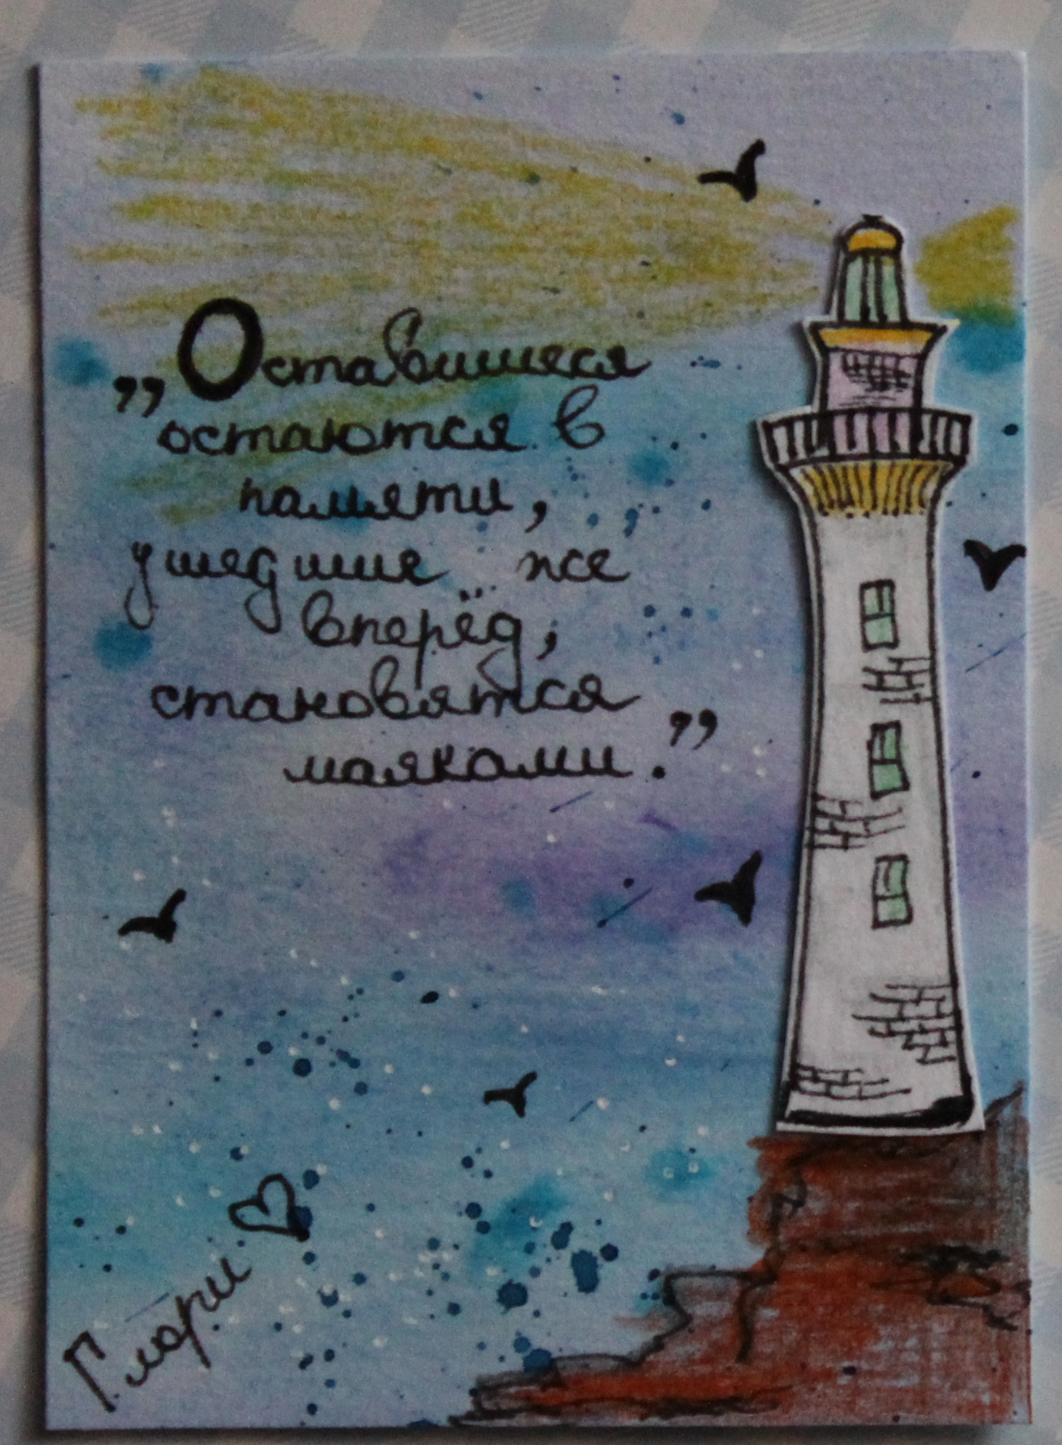 „Оставшиеся
остаются в
памяти,
ушедшие же
вперёд,
становятся
маяками.”
Глори